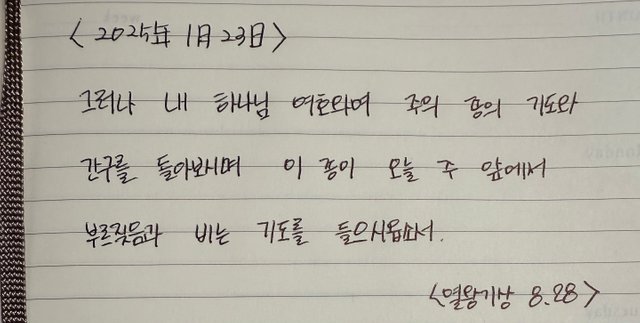 <2025年 1月 23日>
그러나 내 하나님 여호와여 주의 종의 기도와
간구를 돌아보시며 이 종이 오늘 주 앞에서
부르짖음과 비는 기도를 들으시옵소서.
<열왕기상 8.28>